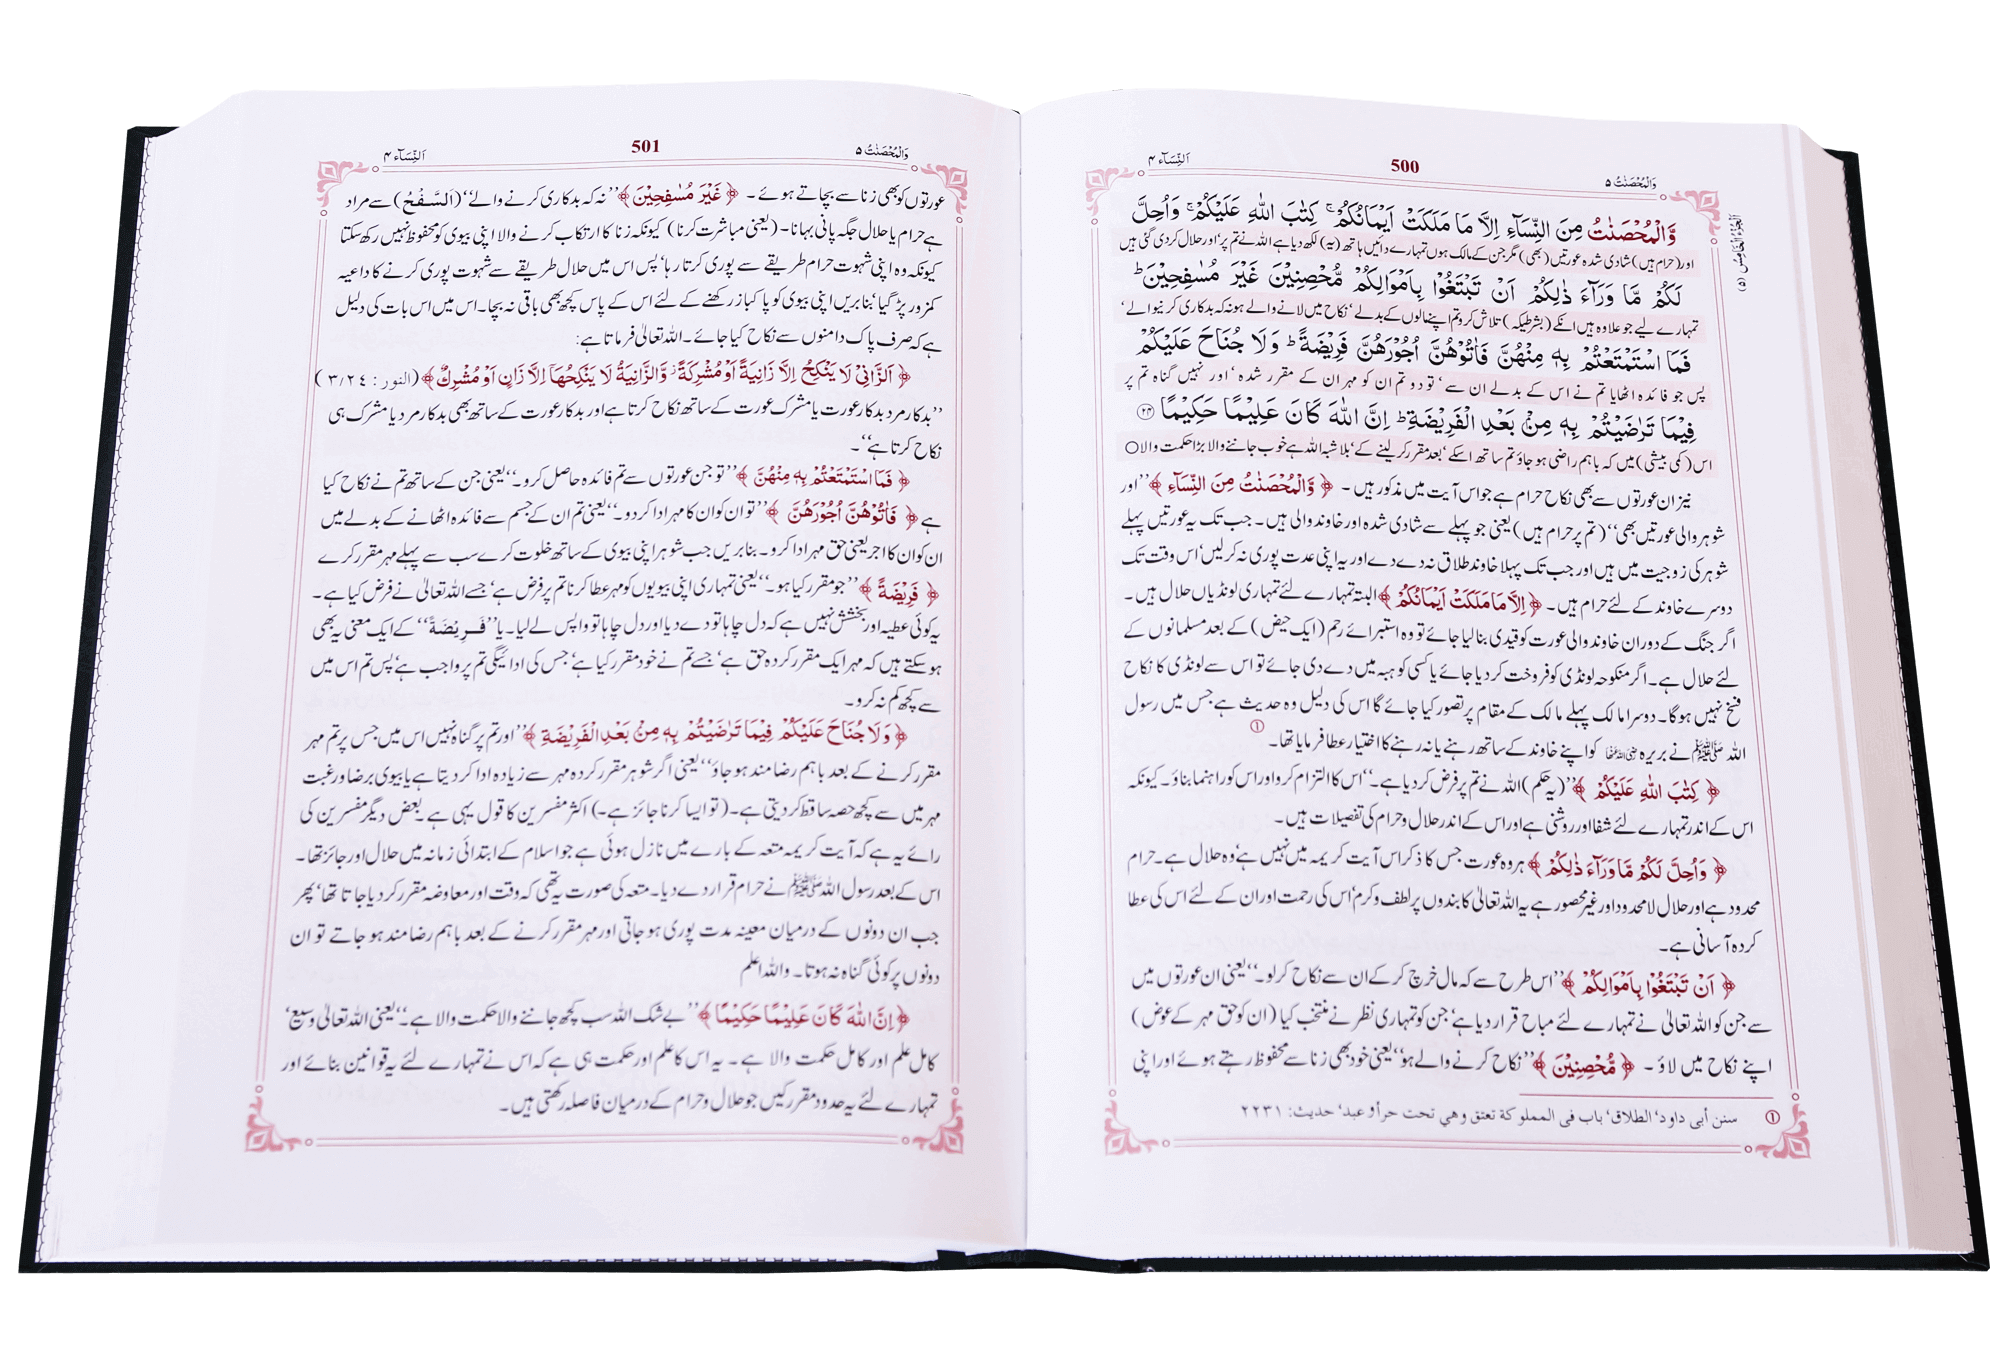 وَالْمُحْصَنٰتُ ۵
500
اَلنِّسَآء ۴
اَلْجُزْءُ الْخَامِسُ (۵)
وَّالْمُحْصَنٰتُ مِنَ النِّسَآءِ اِلَّا مَا مَلَكَتْ اَيْمَانُكُمْ ۚ كِتٰبَ اللّٰهِ عَلَيْكُمْ ۚ وَاُحِلَّ
اور (حرام ہیں) شادی شدہ عورتیں (بھی) مگر جن کے مالک ہوں تمہارے دائیں ہاتھ (یہ) لکھ دیا ہے اللہ نے تم پر' اور حلال کر دی گئی ہیں
لَكُمْ مَّا وَرَآءَ ذٰلِكُمْ اَنْ تَبْتَغُوْا بِاَمْوَالِكُمْ مُّحْصِنِيْنَ غَيْرَ مُسٰفِحِيْنَ ؕ
تمہارے لیے جو علاوہ ہیں انکے (بشرطیکہ) تلاش کرو تم اپنے مالوں کے بدلے' نکاح میں لانے والے ہو نہ کہ بدکاری کرنیوالے'
فَمَا اسْتَمْتَعْتُمْ بِهٖ مِنْهُنَّ فَاٰتُوْهُنَّ اُجُوْرَهُنَّ فَرِيْضَةً ؕ وَلَا جُنَاحَ عَلَيْكُمْ
پس جو فائدہ اٹھایا تم نے اس کے بدلے ان سے' تو دو تم ان کو مہر ان کے مقرر شدہ' اور نہیں گناہ تم پر
فِيْمَا تَرٰضَيْتُمْ بِهٖ مِنْۢ بَعْدِ الْفَرِيْضَةِ ؕ اِنَّ اللّٰهَ كَانَ عَلِيْمًا حَكِيْمًا ۲۴
اس (کمی بیشی) میں کہ باہم راضی ہو جاؤ تم ساتھ اسکے' بعد مقرر کر لینے کے' بلاشبہ اللہ ہے خوب جاننے والا بڑا حکمت والا ○
نیز ان عورتوں سے بھی نکاح حرام ہے جو اس آیت میں مذکور ہیں۔ ﴿ وَّالْمُحْصَنٰتُ مِنَ النِّسَآءِ ﴾ ’’اور
شوہر والی عورتیں بھی‘‘ (تم پر حرام ہیں) یعنی جو پہلے سے شادی شدہ اور خاوند والی ہیں۔ جب تک یہ عورتیں پہلے
شوہر کی زوجیت میں ہیں اور جب تک پہلا خاوند طلاق نہ دے دے اور یہ اپنی عدت پوری نہ کر لیں' اس وقت تک
دوسرے خاوند کے لئے حرام ہیں۔ ﴿ اِلَّا مَا مَلَكَتْ اَيْمَانُكُمْ ﴾ البتہ تمہارے لئے تمہاری لونڈیاں حلال ہیں۔
اگر جنگ کے دوران خاوند والی عورت کو قیدی بنا لیا جائے تو وہ استبرائے رحم (ایک حیض) کے بعد مسلمانوں کے
لئے حلال ہے۔ اگر منکوحہ لونڈی کو فروخت کر دیا جائے یا کسی کو ہبہ میں دے دی جائے تو اس سے لونڈی کا نکاح
فسخ نہیں ہوگا۔ دوسرا مالک پہلے مالک کے مقام پر تصور کیا جائے گا اس کی دلیل وہ حدیث ہے جس میں رسول
اللہ ﷺ نے بریرہ رضی اللہ عنہا کو اپنے خاوند کے ساتھ رہنے یا نہ رہنے کا اختیار عطا فرمایا تھا۔ ①
﴿ كِتٰبَ اللّٰهِ عَلَيْكُمْ ﴾ ’’(یہ حکم) اللہ نے تم پر فرض کر دیا ہے۔‘‘ اس کا التزام کرو اور اس کو راہنما بناؤ۔ کیونکہ
اس کے اندر تمہارے لئے شفا اور روشنی ہے اور اس کے اندر حلال و حرام کی تفصیلات ہیں۔
﴿ وَاُحِلَّ لَكُمْ مَّا وَرَآءَ ذٰلِكُمْ ﴾ ہر وہ عورت جس کا ذکر اس آیت کریمہ میں نہیں ہے' وہ حلال ہے۔ حرام
محدود ہے اور حلال لامحدود اور غیر محصور ہے یہ اللہ تعالیٰ کا بندوں پر لطف و کرم' اس کی رحمت اور ان کے لئے اس کی عطا
کردہ آسانی ہے۔
﴿ اَنْ تَبْتَغُوْا بِاَمْوَالِكُمْ ﴾ ’’اس طرح سے کہ مال خرچ کر کے ان سے نکاح کر لو۔‘‘ یعنی ان عورتوں میں
سے جن کو اللہ تعالیٰ نے تمہارے لئے مباح قرار دیا ہے' جن کو تمہاری نظر نے منتخب کیا (ان کو حق مہر کے عوض)
اپنے نکاح میں لاؤ۔ ﴿ مُّحْصِنِيْنَ ﴾ ’’نکاح کرنے والے ہو‘‘ یعنی خود بھی زنا سے محفوظ رہتے ہوئے اور اپنی
① سنن أبى داود' الطلاق' باب فى المملوكة تعتق وهي تحت حر أو عبد' حديث: ۲۲۳۱
وَالْمُحْصَنٰتُ ۵
501
اَلنِّسَآء ۴
عورتوں کو بھی زنا سے بچاتے ہوئے۔ ﴿ غَيْرَ مُسٰفِحِيْنَ ﴾ ’’نہ کہ بدکاری کرنے والے‘‘ (اَلسَّفْحُ) سے مراد
ہے حرام یا حلال جگہ پانی بہانا۔ (یعنی مباشرت کرنا) کیونکہ زنا کا ارتکاب کرنے والا اپنی بیوی کو محفوظ نہیں رکھ سکتا
کیونکہ وہ اپنی شہوت حرام طریقے سے پوری کرتا رہا' پس اس میں حلال طریقے سے شہوت پوری کرنے کا داعیہ
کمزور پڑ گیا' بنابریں اپنی بیوی کو پاکباز رکھنے کے لئے اس کے پاس کچھ بھی باقی نہ بچا۔ اس میں اس بات کی دلیل
ہے کہ صرف پاک دامنوں سے نکاح کیا جائے۔ اللہ تعالیٰ فرماتا ہے:
﴿ اَلزَّانِىْ لَا يَنْكِحُ اِلَّا زَانِيَةً اَوْ مُشْرِكَةً ۡ وَّالزَّانِيَةُ لَا يَنْكِحُهَآ اِلَّا زَانٍ اَوْ مُشْرِكٌ ﴾ (النور : ۳/۲٤)
’’بدکار مرد بدکار عورت یا مشرک عورت کے ساتھ نکاح کرتا ہے اور بدکار عورت کے ساتھ بھی بدکار مرد یا مشرک ہی
نکاح کرتا ہے‘‘۔
﴿ فَمَا اسْتَمْتَعْتُمْ بِهٖ مِنْهُنَّ ﴾ ’’تو جن عورتوں سے تم فائدہ حاصل کرو۔‘‘ یعنی جن کے ساتھ تم نے نکاح کیا
ہے ﴿ فَاٰتُوْهُنَّ اُجُوْرَهُنَّ ﴾ ’’تو ان کو ان کا مہر ادا کر دو۔‘‘ یعنی تم ان کے جسم سے فائدہ اٹھانے کے بدلے میں
ان کو ان کا اجر یعنی حق مہر ادا کرو۔ بنابریں جب شوہر اپنی بیوی کے ساتھ خلوت کرے سب سے پہلے مہر مقرر کرے
﴿ فَرِيْضَةً ﴾ ’’جو مقرر کیا ہو۔‘‘ یعنی تمہاری اپنی بیویوں کو مہر عطا کرنا تم پر فرض ہے' جسے اللہ تعالیٰ نے فرض کیا ہے۔
یہ کوئی عطیہ اور بخشش نہیں ہے کہ دل چاہا تو دے دیا اور دل چاہا تو واپس لے لیا۔ یا ’’فَرِيْضَةً‘‘ کے ایک معنی یہ بھی
ہو سکتے ہیں کہ مہر ایک مقرر کردہ حق ہے' جسے تم نے خود مقرر کیا ہے' جس کی ادائیگی تم پر واجب ہے' پس تم اس میں
سے کچھ کم نہ کرو۔
﴿ وَلَا جُنَاحَ عَلَيْكُمْ فِيْمَا تَرٰضَيْتُمْ بِهٖ مِنْۢ بَعْدِ الْفَرِيْضَةِ ﴾ ’’اور تم پر گناہ نہیں اس میں جس پر تم مہر
مقرر کرنے کے بعد باہم رضا مند ہو جاؤ‘‘ یعنی اگر شوہر مقرر کردہ مہر سے زیادہ ادا کر دیتا ہے یا بیوی برضا و رغبت
مہر میں سے کچھ حصہ ساقط کر دیتی ہے۔ (تو ایسا کرنا جائز ہے۔) اکثر مفسرین کا قول یہی ہے بعض دیگر مفسرین کی
رائے یہ ہے کہ آیت کریمہ متعہ کے بارے میں نازل ہوئی ہے جو اسلام کے ابتدائی زمانہ میں حلال اور جائز تھا۔
اس کے بعد رسول اللہ ﷺ نے حرام قرار دے دیا۔ متعہ کی صورت یہ تھی کہ وقت اور معاوضہ مقرر کر دیا جاتا تھا' پھر
جب ان دونوں کے درمیان معینہ مدت پوری ہو جاتی اور مہر مقرر کرنے کے بعد باہم رضا مند ہو جاتے تو ان
دونوں پر کوئی گناہ نہ ہوتا۔ واللہ اعلم
﴿ اِنَّ اللّٰهَ كَانَ عَلِيْمًا حَكِيْمًا ﴾ ’’بے شک اللہ سب کچھ جاننے والا حکمت والا ہے۔‘‘ یعنی اللہ تعالیٰ وسیع'
کامل علم اور کامل حکمت والا ہے۔ یہ اس کا علم اور حکمت ہی ہے کہ اس نے تمہارے لئے یہ قوانین بنائے اور
تمہارے لئے یہ حدود مقرر کیں جو حلال و حرام کے درمیان فاصلہ رکھتی ہیں۔